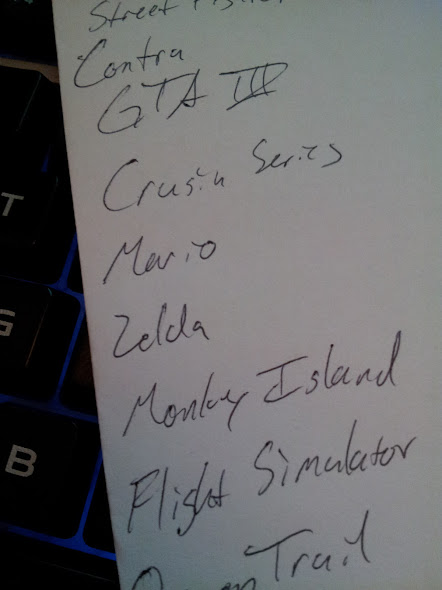 Street
Contra
GTA III
Crusin Series
Mario
Zelda
Monkey Island
Flight Simulator
Trail
T
G
B